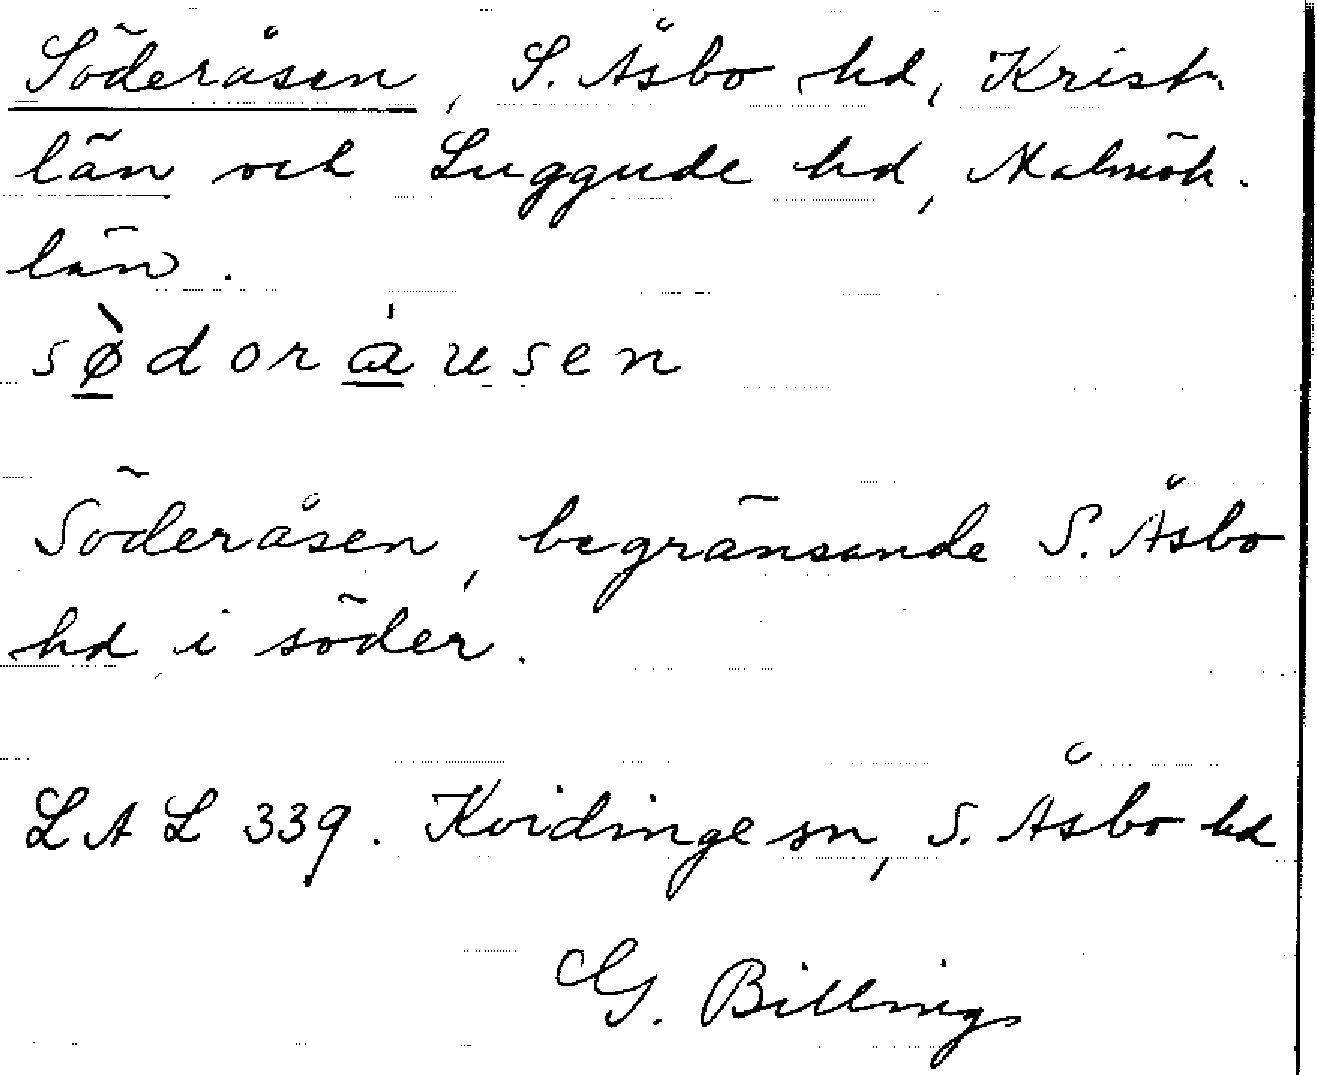 Söderåsen, S. Åsbo hd, Krist
län och Luggude hd, Malmöh.
län.
sø̀doråusen
Söderåsen, begränsande S. Åsbo
hd i söder.
LAL 339. Kvidinge sn, S. Åsbo hd
G. Billings